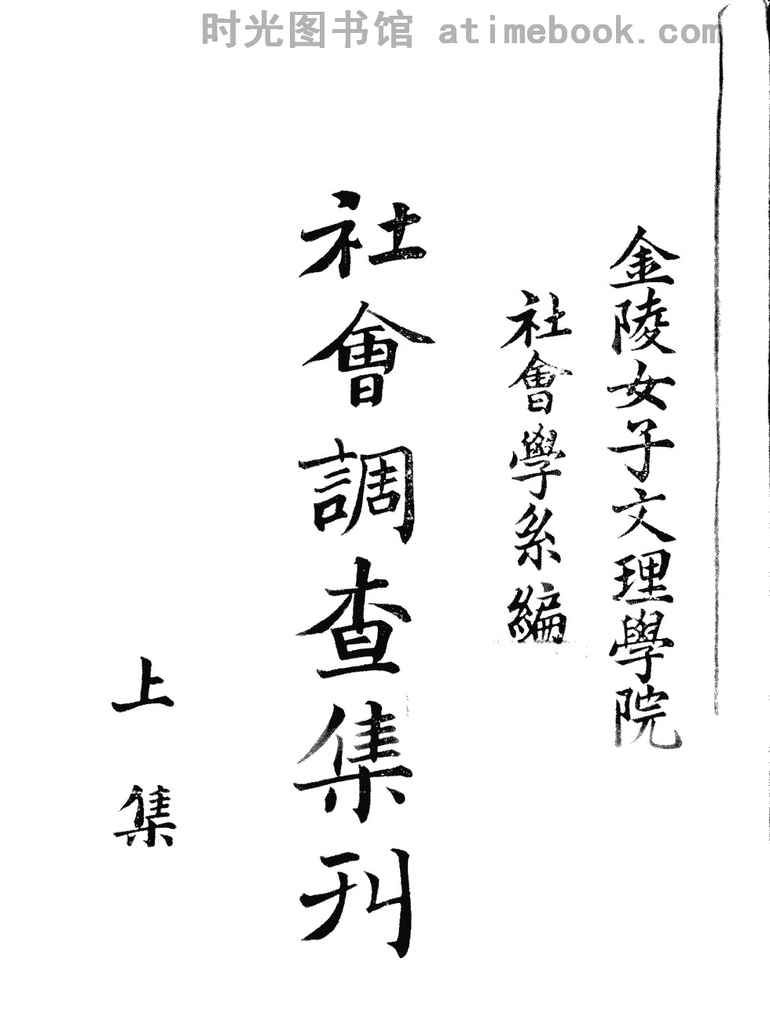 时光图书馆 atimebook.com
金陵女子文理學院
社會學系編
社會調查集刊
上集